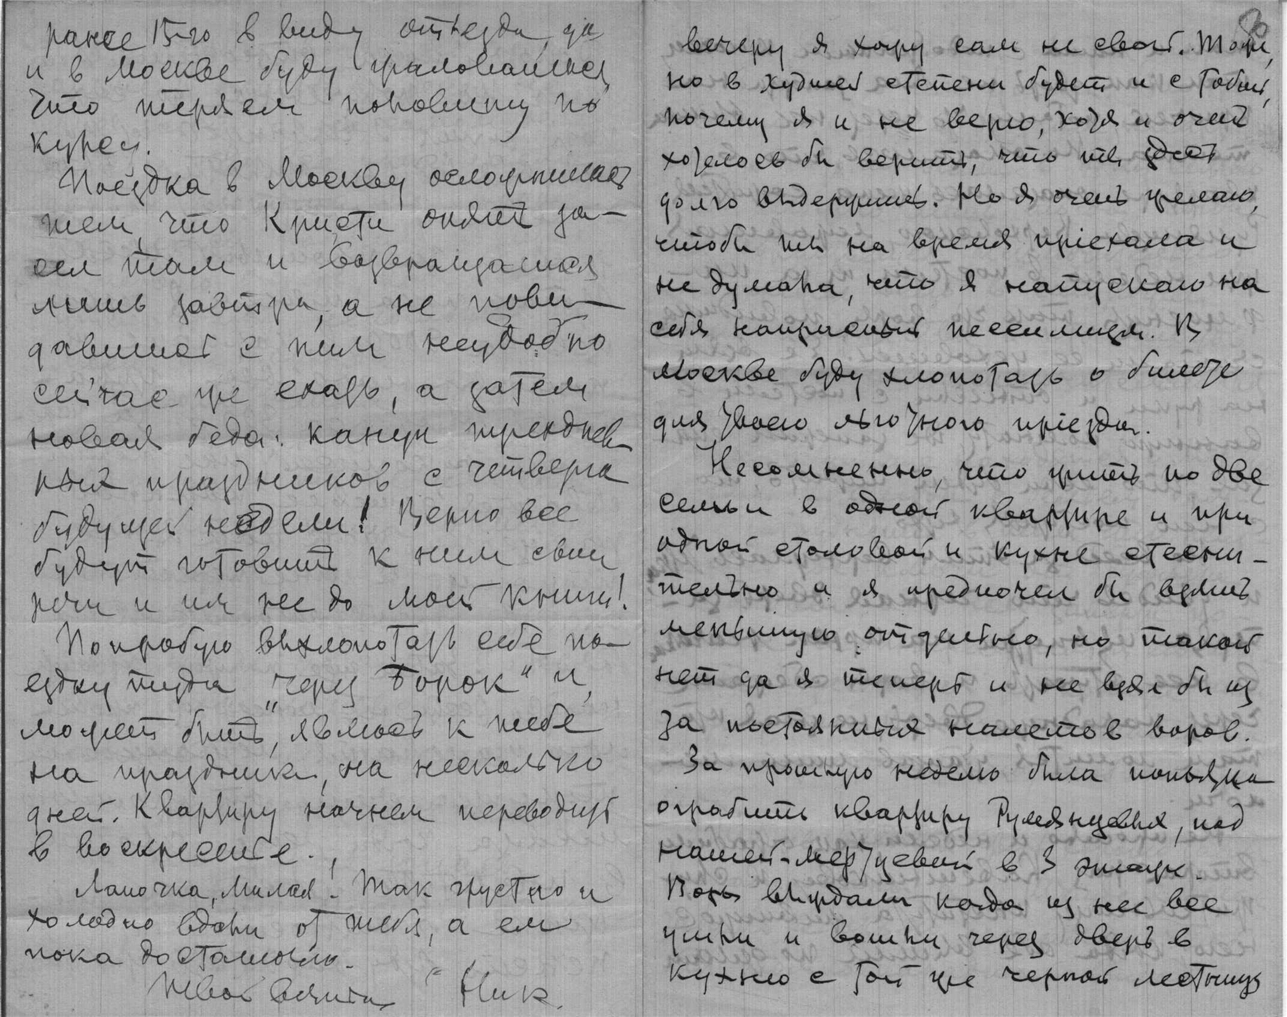 ранее 15-го в виду отъезда, да
и в Москве буду жаловаться,
что теряем половину по
курсу.
Поездка в Москву осложняется
тем, что Кристи опять за-
сел там и возвращается
лишь завтра, а не пови-
давшись с ним неудобно
сейчас же ехать, а затем
новая беда: канун трехднев
ных праздников с четверга
будущей недели! Верно все
будут готовить к ним свои
речи и им не до моей книги!
Попробую выхлопотать себе по-
ездку туда "через Борок" и,
может быть, явлюсь к тебе
на праздники, на несколько
дней. Квартиру начнем переводить
в воскресенье.
Лапочка, милая! Так грустно и
холодно вдали от тебя, а ем
пока достаточно.
Твой Ник.
20
вечеру я хожу сам не свой. Тоже,
но в худшей степени будет и с Тобой,
почему я и не верю, хотя и очень
хотелось бы верить, что ты здесь
долго выдержишь. Но я очень желаю,
чтобы ты на время приехала и
не думала, что я напускаю на
себя напрасный пессимизм. В
Москве буду хлопотать о билете
для твоего льготного приезда.
Несомненно, что жить по две
семьи в одной квартире и при
одной столовой и кухне стесни-
тельно и я предпочел бы взять
меньшую отдельно, но такой
нет да я теперь и не взял бы из
за постоянных налетов воров.
За прошлую неделю была попытка
ограбить квартиру Румянцевых, над
нашей-мертцевой в 3 этаже.
Воры выждали когда из нее все
ушли и вошли через дверь в
кухню с той же черной лестницы